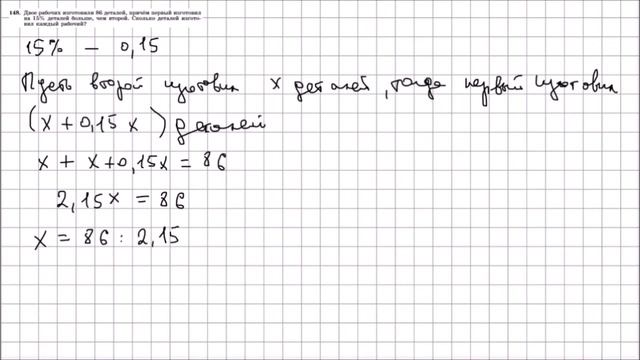 148. Двое рабочих изготовили 86 деталей, причём первый изготовил
на 15% деталей больше, чем второй. Сколько деталей изгото-
вил каждый рабочий?
15% — 0,15
Пусть второй изготовил x деталей, тогда первый изготовил
(x + 0,15 x) деталей
x + x + 0,15x = 86
2,15x = 86
x = 86 : 2,15